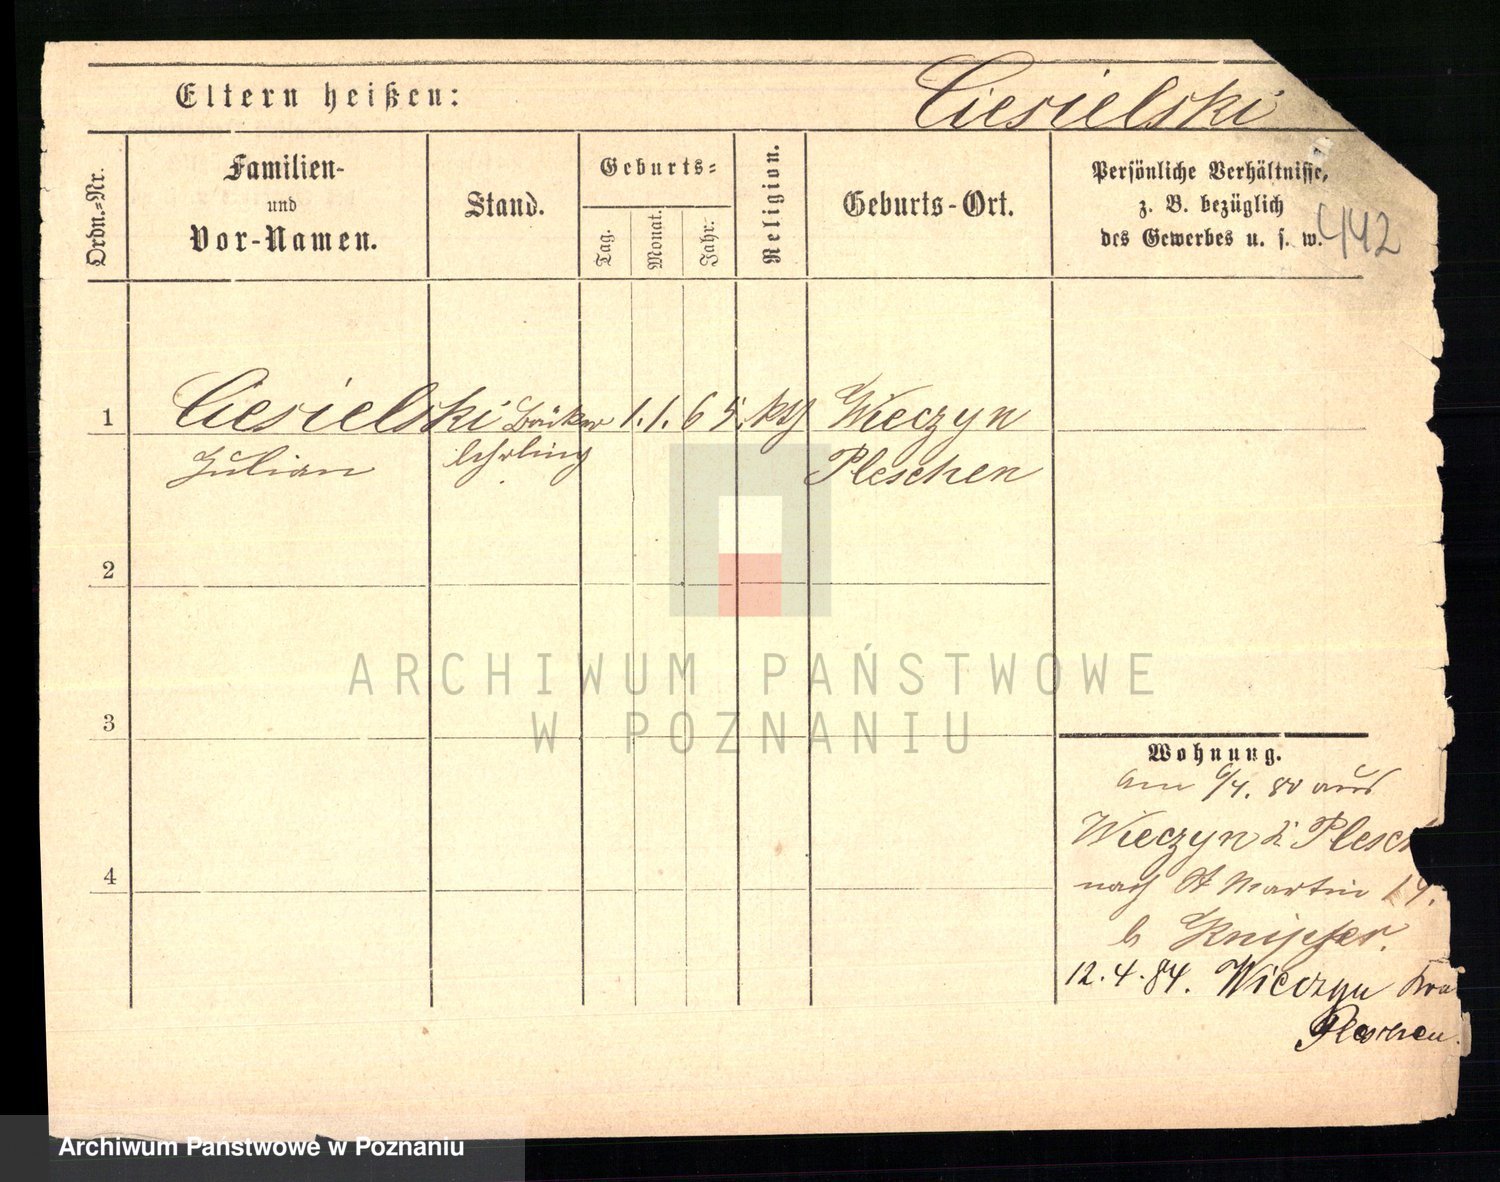 Eltern heißen:
Ciesielski
Ordn.-Nr.
Familien-
und
Vor-Namen.
Stand.
Geburts-
Tag.
Monat.
Jahr.
Religion.
Geburts-Ort.
Persönliche Verhältnisse,
z. B. bezüglich
des Gewerbes u. s. w.
442
1
Ciesielski Bäcker 1. 1. 65. kth Wieczyn
Julian lehrling Pleschen
2
3
4
Wohnung.
Am 6/4. 80 aus
Wieczyn Ples
nach St Martin 14.
b
12.4.84. Wieczyn
Pleschen.
ARCHIWUM PAŃSTWOWE
W POZNANIU
Archiwum Państwowe w Poznaniu